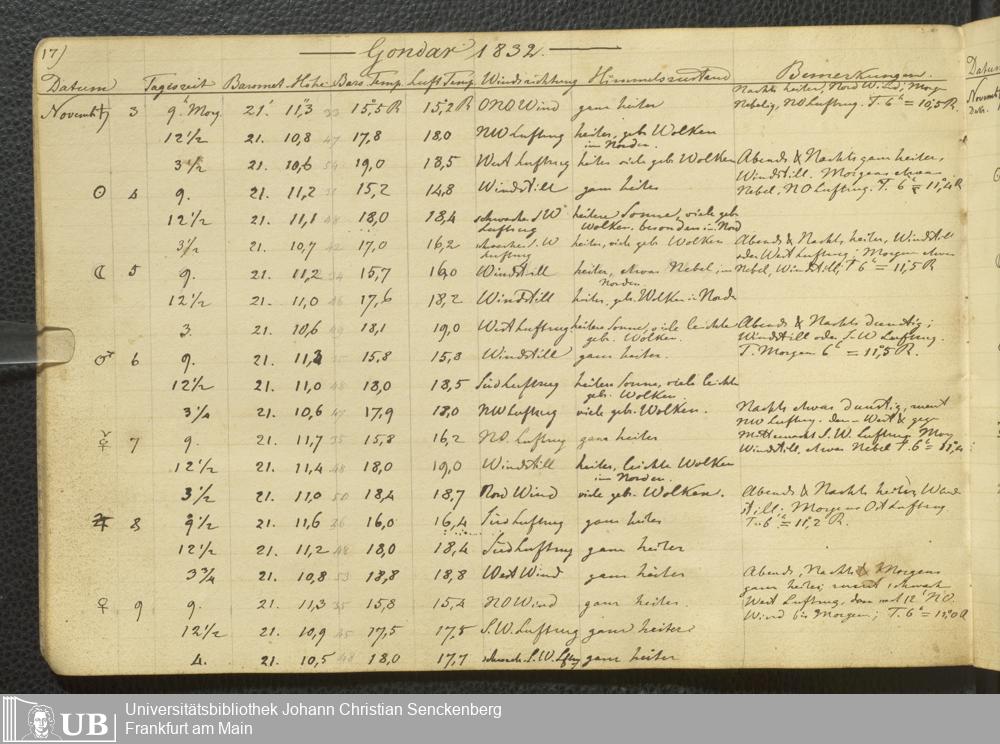 17)
Gondar 1832.
Datum Tageszeit Baromet. Höhe Baro Temp. Luft Temp. Windrichtung Himmelszustand Bemerkungen.
Novemb. ♄ 3 9' Morg. 21' 11,3 33 15,5 R 15,2 R ONO Wind ganz heiter Nachts heiter, Nord Wind, Morg. Nebelig, NO Luftzug. T. 6' = 10,5 R.
12 1/2 21. 10,8 47 17,8 18,0 NW Luftzug heiter, geb. Wolken im Norden.
3 1/2 21. 10,6 54 19,0 18,5 West Luftzug heiter viele geb. Wolken Abends & Nachts ganz heiter, Windstill. Morgens etwas
☉ 4 9. 21. 11,2 15,2 14,8 Windstill ganz heiter Nebel, NO Luftzug. T. 6' = 11,4 R
12 1/2 21. 11,1 18,0 18,4 schwacher S.W Luftzug heitere Sonne, viele geb. Wolken, besonders im Nord
3 1/2 21. 10,7 42 17,0 16,2 schwacher S.W Luftzug heiter, viele geb. Wolken Abends & Nachts, heiter, Windstill oder West Luftzug; Morgens etwas
☾ 5 9. 21. 11,2 34 15,7 16,0 Windstill heiter, etwas Nebel im Norden Nebel, Windstill, T 6' = 11,5 R
12 1/2 21. 11,0 46 17,6 18,2 Windstill heiter, geb. Wolken in Norden
3 21. 10,6 49 18,1 19,0 West Luftzug heitere Sonne, viele leichte geb. Wolken. Abends & Nachts dunstig; Windstill oder S.W Luftzug.
♂ 6 9. 21. 11,3 35 15,8 15,3 Windstill ganz heiter. T. Morgen 6' = 11,5 R.
12 1/2 21. 11,0 48 18,0 18,5 Süd Luftzug heitere Sonne, viele leichte geb. Wolken.
3 1/4 21. 10,6 47 17,9 18,0 NW Luftzug viele geb. Wolken. Nachts etwas dunstig, zuerst NW Luftzug. dann West & geg.
☿ 7 9. 21. 11,7 35 15,8 16,2 NO. Luftzug ganz heiter Mitternacht S.W. Luftzug. Morg. Windstill, etwas Nebel T. 6' = 11,4
12 1/2 21. 11,4 48 18,0 19,0 Windstill heiter, leichte Wolken im Norden.
3 1/2 21. 11,0 50 18,4 18,7 Nord Wind viele geb. Wolken. Abends & Nachts heiter, Wind still; Morgens Ost Luftzug.
♃ 8 9 1/2 21. 11,6 36 16,0 16,4 Süd Luftzug ganz heiter T. 6' = 11,2 R.
12 1/2 21. 11,2 48 18,0 18,4 Süd Luftzug ganz heiter
3 3/4 21. 10,8 53 18,8 18,8 West Wind ganz heiter Abends, Nachts & Morgens ganz heiter; zuerst schwach
♀ 9 9. 21. 11,3 35 15,8 15,4 NO Wind ganz heiter. West Luftzug, dann nach 12' NO. Wind bis Morgen; T. 6' = 11,0 R
12 1/2 21. 10,9 45 17,5 17,5 S.W. Luftzug ganz heiter
4. 21. 10,5 48 18,0 17,7 schwach. S.W. Lftzg ganz heiter
Datum
Novemb.
UB
Universitätsbibliothek Johann Christian Senckenberg
Frankfurt am Main